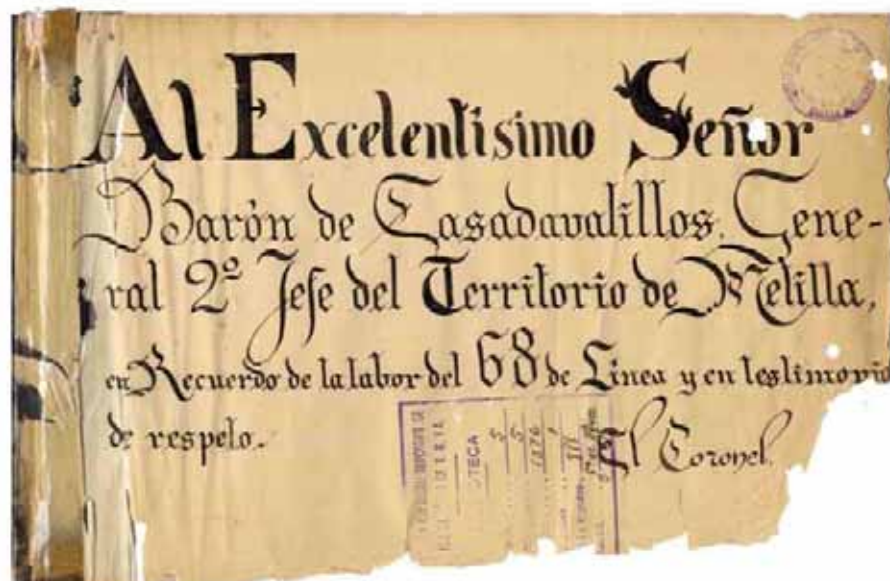 Al Excelentisimo Señor
Barón de Casadavalillos. Gene-
ral 2º Jefe del Territorio de Melilla,
en Recuerdo de la labor del 68 de Linea y en testimonio
de respeto.
El Coronel.